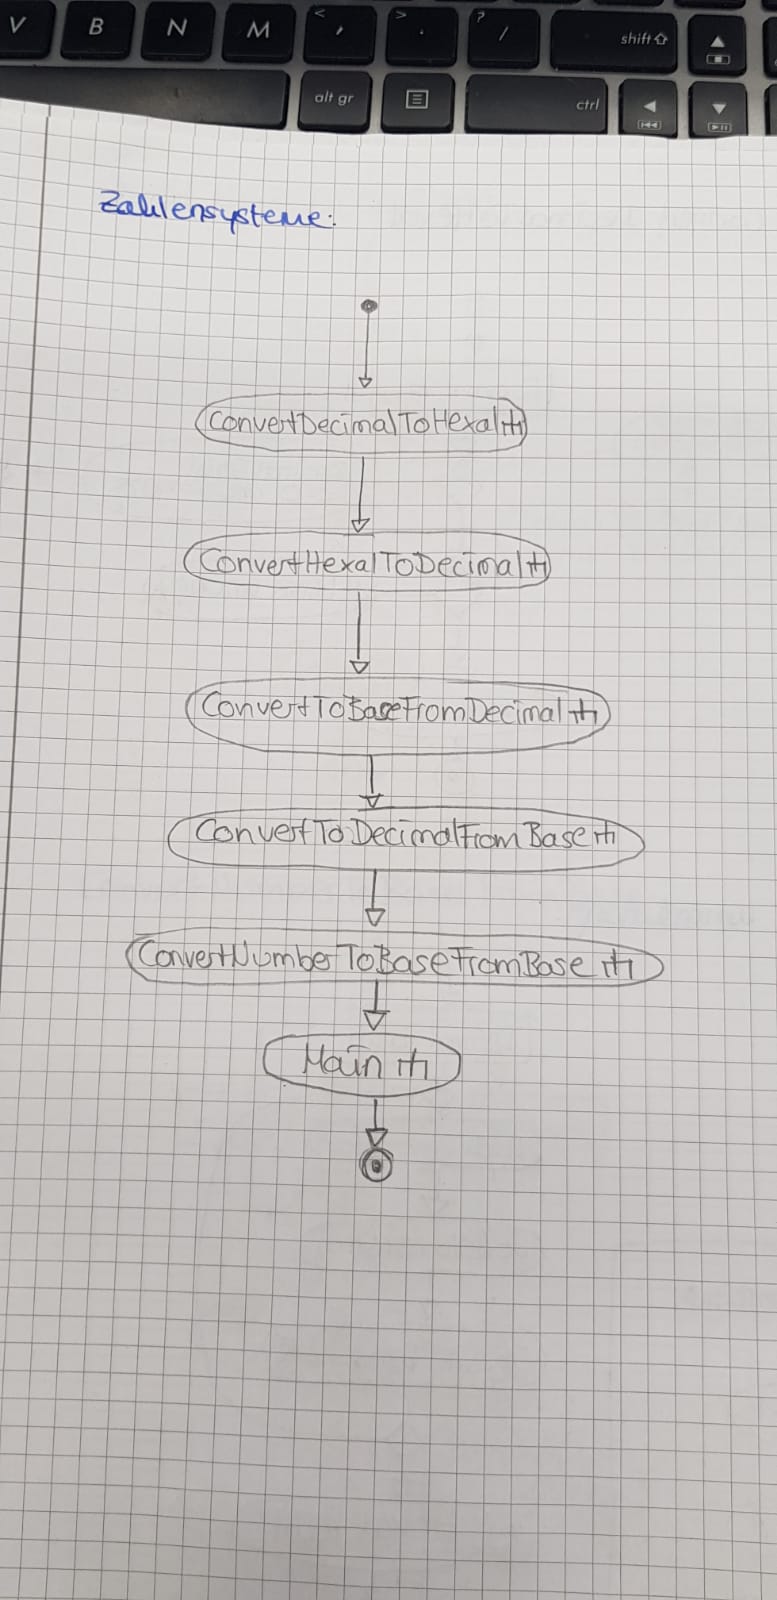 V B N M < , > . ? / shift
alt gr ctrl
Zahlensysteme:
ConvertDecimalToHexal
ConvertHexalToDecimal
ConvertToBaseFromDecimal
ConvertToDecimalFromBase
ConvertNumberToBaseFromBase
Main